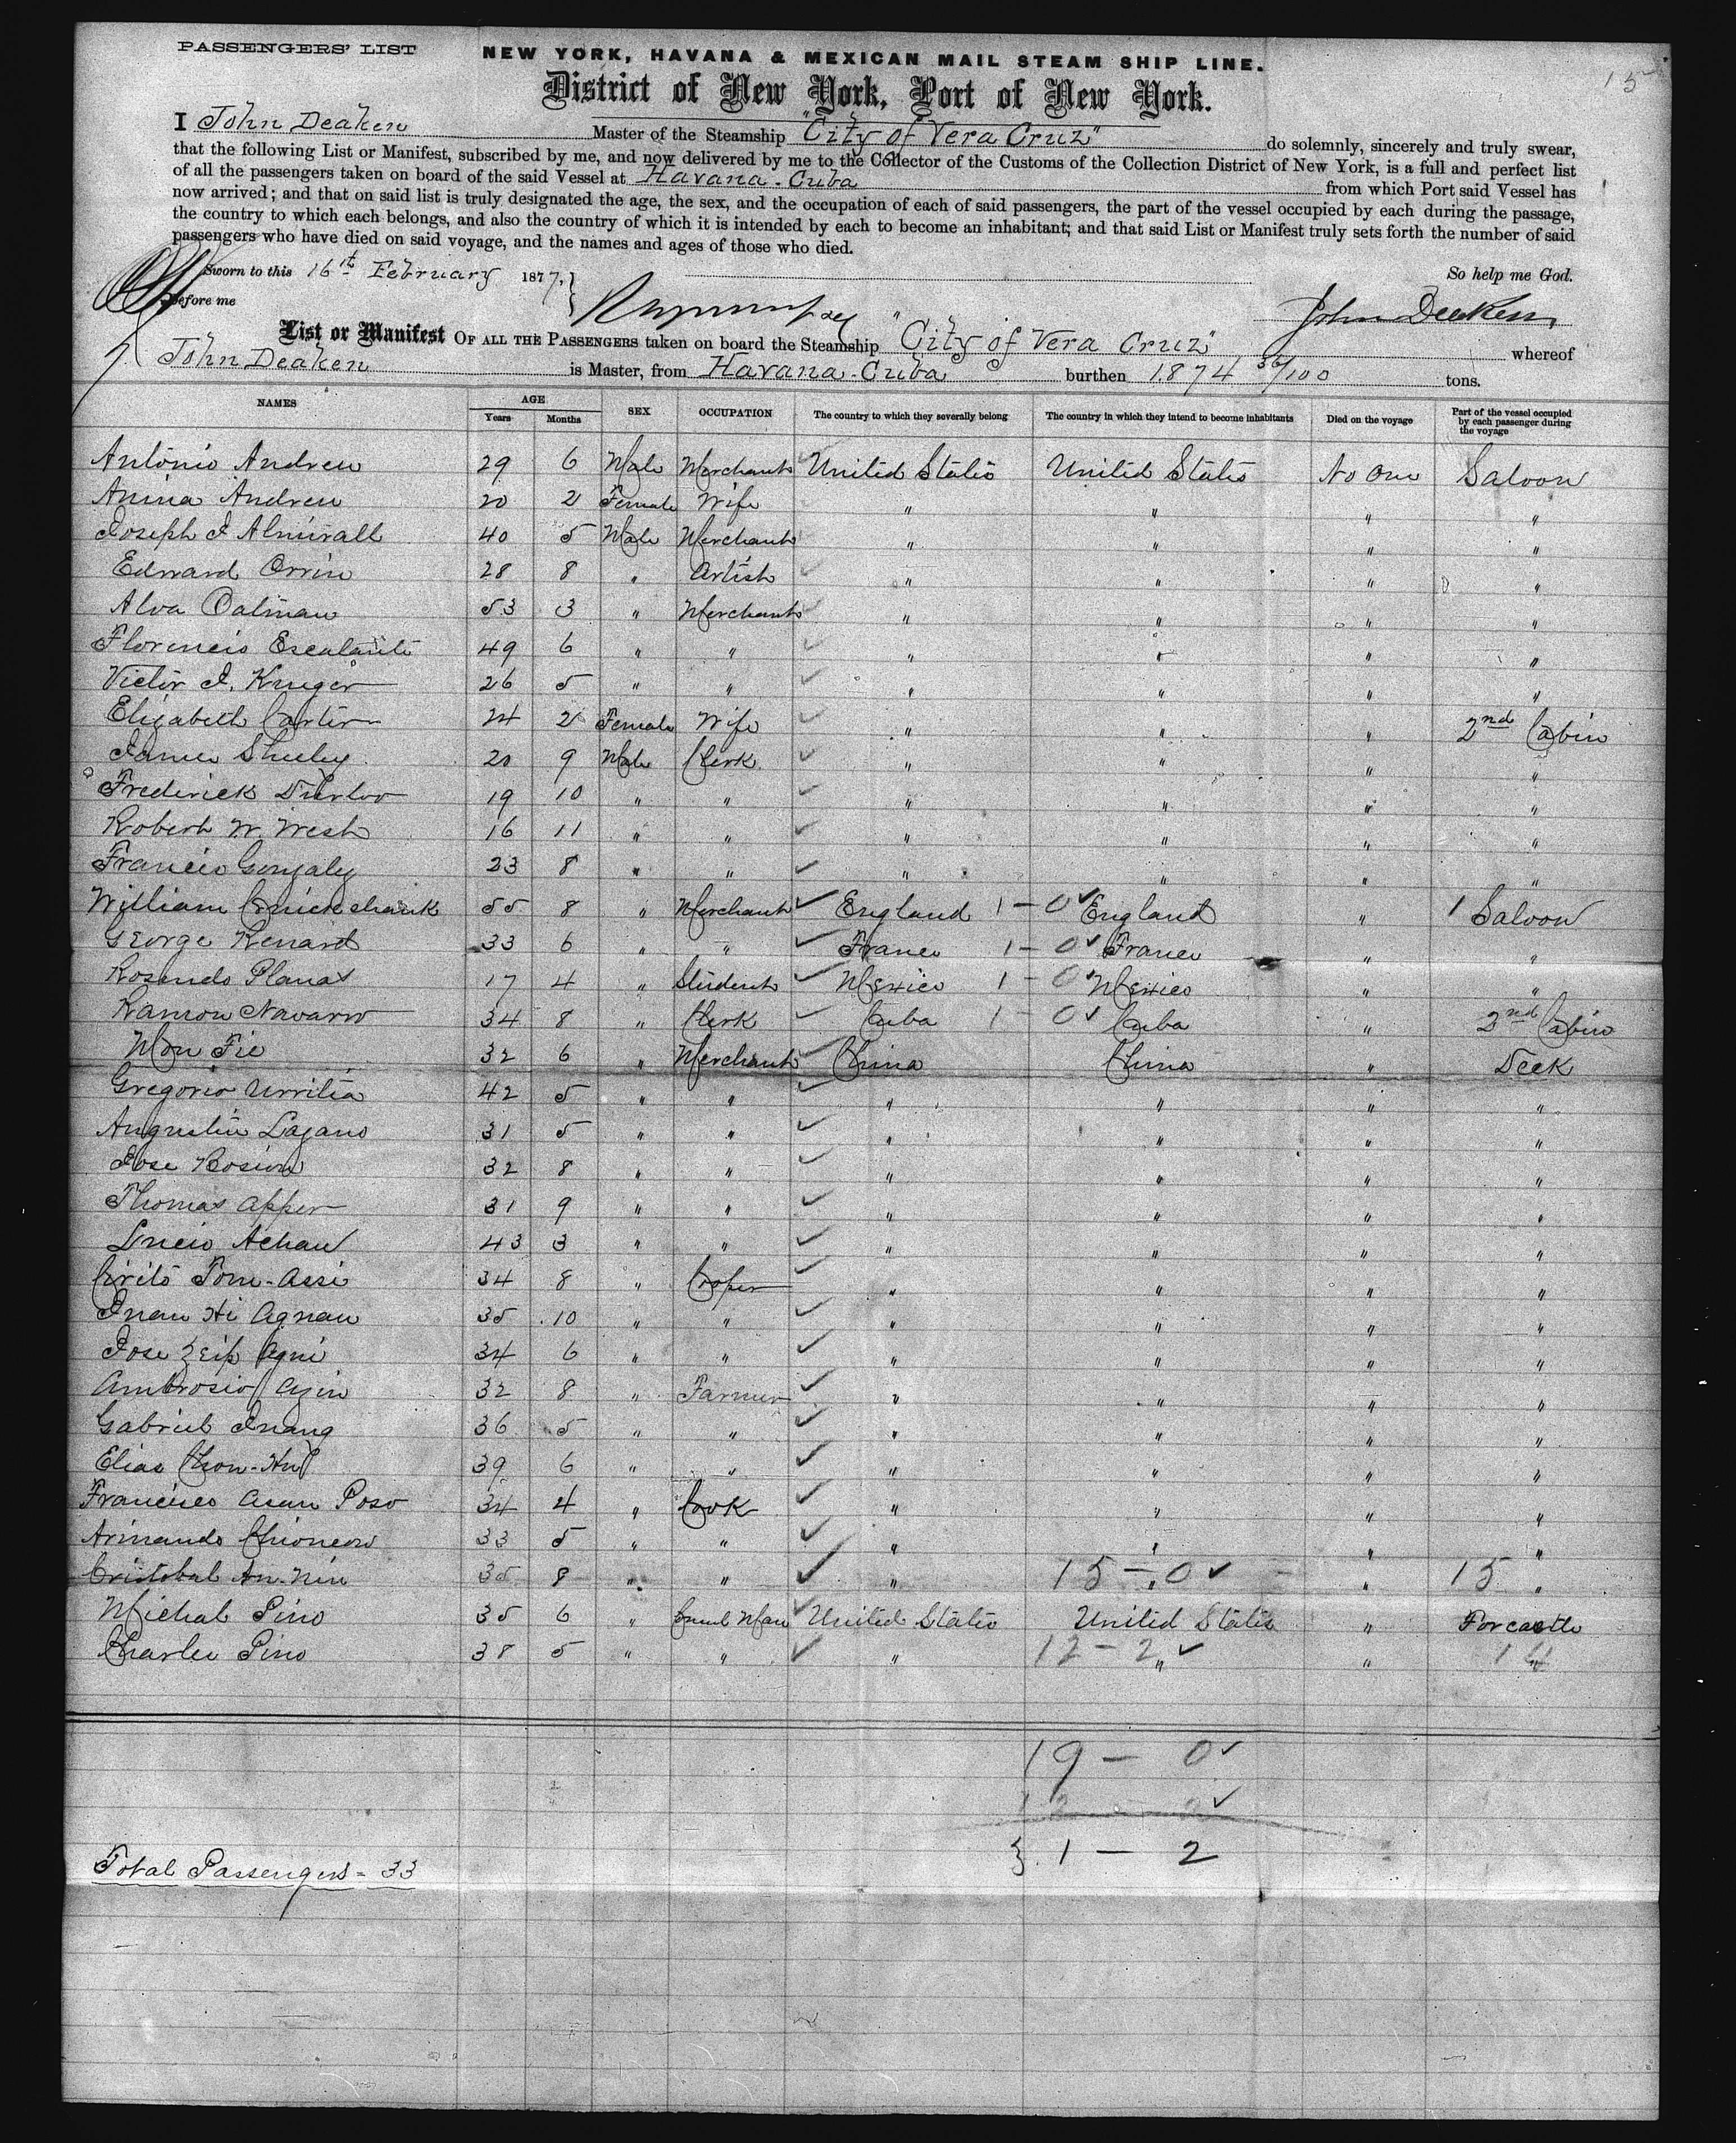 PASSENGERS' LIST
NEW YORK, HAVANA & MEXICAN MAIL STEAM SHIP LINE.
15
District of New York, Port of New York.
I John Deaken Master of the Steamship "City of Vera Cruz" do solemnly, sincerely and truly swear,
that the following List or Manifest, subscribed by me, and now delivered by me to the Collector of the Customs of the Collection District of New York, is a full and perfect list
of all the passengers taken on board of the said Vessel at Havana - Cuba from which Port said Vessel has
now arrived; and that on said list is truly designated the age, the sex, and the occupation of each of said passengers, the part of the vessel occupied by each during the passage,
the country to which each belongs, and also the country of which it is intended by each to become an inhabitant; and that said List or Manifest truly sets forth the number of said
passengers who have died on said voyage, and the names and ages of those who died.
Sworn to this 16th February 1877, } So help me God.
Before me John Deaken
List or Manifest OF ALL THE PASSENGERS taken on board the Steamship "City of Vera Cruz" whereof
John Deaken is Master, from Havana - Cuba burthen 1874 36/100 tons.
NAMES AGE Years Months SEX OCCUPATION The country to which they severally belong The country in which they intend to become inhabitants Died on the voyage Part of the vessel occupied by each passenger during the voyage
Antonio Andreu 29 6 Male Merchant United States United States No One Saloon
Anina Andreu 20 2 Female Wife " " " "
Joseph J Almirall 40 5 Male Merchant " " " "
Edward Orrin 28 8 " Artist " " " "
Alva Oatman 53 3 " Merchant " " " "
Florencio Escalante 49 6 " " " " " "
Victor J. Kruger 26 5 " " " " " "
Elizabeth Carter 24 2 Female Wife " " " 2nd Cabin
James Sheehy 20 9 Male Clerk " " " "
Frederick 19 10 " " " " " "
Robert W. West 16 11 " " " " " "
Francis Gonzalez 23 8 " " " " " "
William Cruickshank 55 8 " Merchant England 1 - 0 England " 1 Saloon
George Renard 33 6 " " France 1 - 0 France " "
Rosendo Planas 17 4 " Student Mexico 1 - 0 Mexico " "
Ramon Navarro 34 8 " Clerk Cuba 1 - 0 Cuba " 2nd Cabin
Mon Fie 32 6 " Merchant China China " Deck
Gregorio Urritia 42 5 " " " " " "
Augustin Lazano 31 5 " " " " " "
Jose Rosion 32 8 " " " " " "
Thomas Apper 31 9 " " " " " "
Lucio Achau 43 3 " " " " " "
Cirilo Tom-Assi 34 8 " Cooper " " " "
Juan Hi Agnau 35 10 " " " " " "
Jose Zeip Agni 34 6 " " " " " "
Ambrosio Ayin 32 8 " Farmer " " " "
Gabriel Juang 36 5 " " " " " "
Elias Chon-Hu 39 6 " " " " " "
Francisco Asan Poso 34 4 " Cook " " " "
Armando Chioneon 33 5 " " " " " "
Cristobal An-Nin 35 8 " " " 15 - 0 " " 15 "
Michal Pino 35 6 " United States United States " Forcastle
Charles Pino 38 5 " " " 12 - 2 " " 14 "
19 - 0
12 - 2
} 1 - 2
Total Passengers - 33